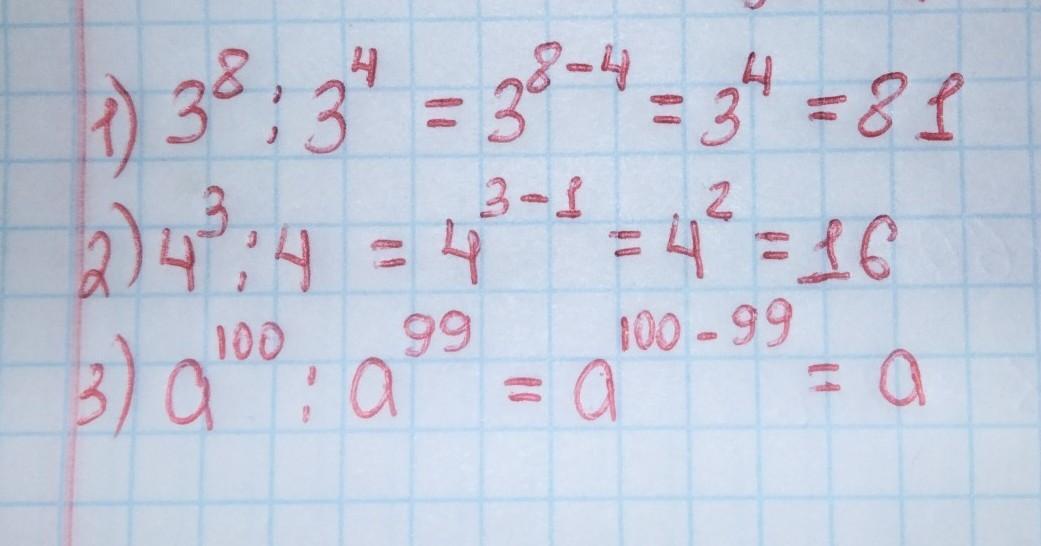 1) 3⁸ : 3⁴ = 3⁸⁻⁴ = 3⁴ = 81
2) 4³ : 4 = 4³⁻¹ = 4² = 16
3) a¹⁰⁰ : a⁹⁹ = a¹⁰⁰⁻⁹⁹ = a